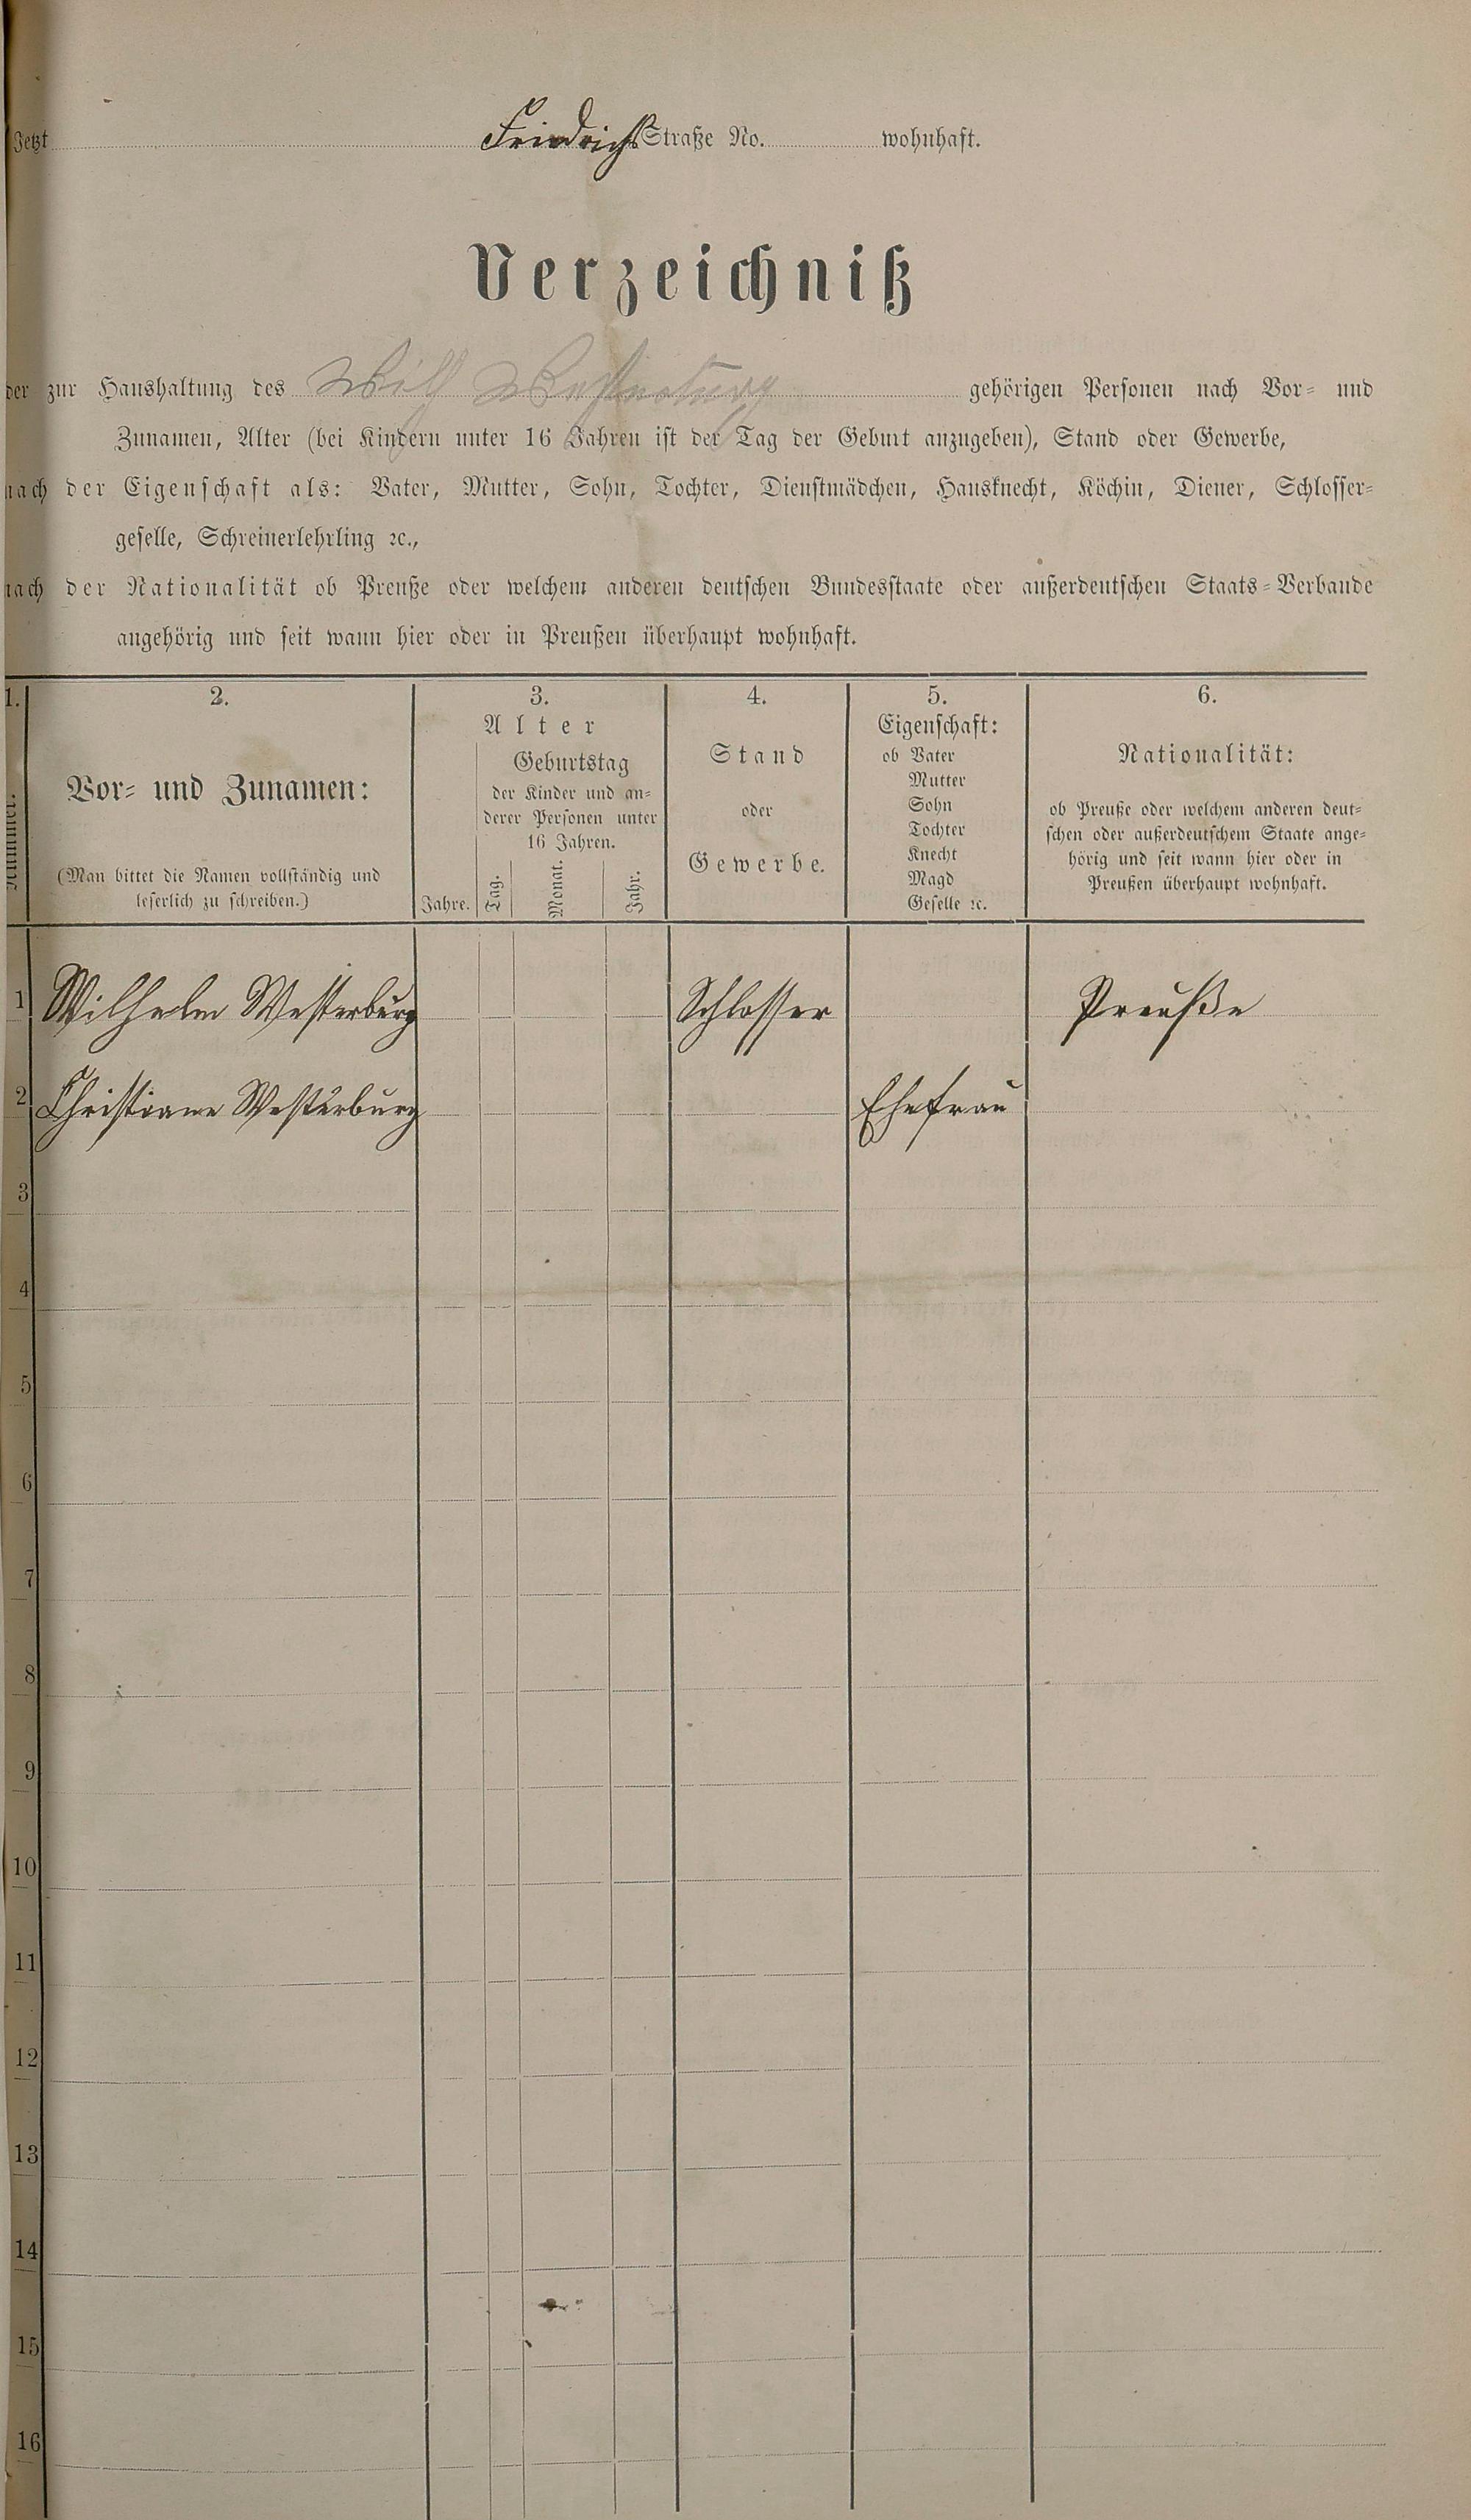 Jetzt Friedrichs Straße No. wohnhaft.
Verzeichniß
der zur Haushaltung des Wilh Westerburg gehörigen Personen nach Vor- und
Zunamen, Alter (bei Kindern unter 16 Jahren ist der Tag der Geburt anzugeben), Stand oder Gewerbe,
nach der Eigenschaft als: Vater, Mutter, Sohn, Tochter, Dienstmädchen, Hausknecht, Köchin, Diener, Schlosser-
geselle, Schreinerlehrling ꝛc.,
nach der Nationalität ob Preuße oder welchem anderen deutschen Bundesstaate oder außerdeutschen Staats-Verbande
angehörig und seit wann hier oder in Preußen überhaupt wohnhaft.
1.
Nummer.
2.
Vor- und Zunamen:
(Man bittet die Namen vollständig und
leserlich zu schreiben.)
3.
Alter
Geburtstag
der Kinder und an-
derer Personen unter
16 Jahren.
Jahre. Tag. Monat. Jahr.
4.
Stand
oder
Gewerbe.
5.
Eigenschaft:
ob Vater
Mutter
Sohn
Tochter
Knecht
Magd
Geselle ꝛc.
6.
Nationalität:
ob Preuße oder welchem anderen deut-
schen oder außerdeutschem Staate ange-
hörig und seit wann hier oder in
Preußen überhaupt wohnhaft.
1 Wilhelm Westerburg Schlosser Preuße
2 Christiane Westerburg Ehefrau
3
4
5
6
7
8
9
10
11
12
13
14
15
16